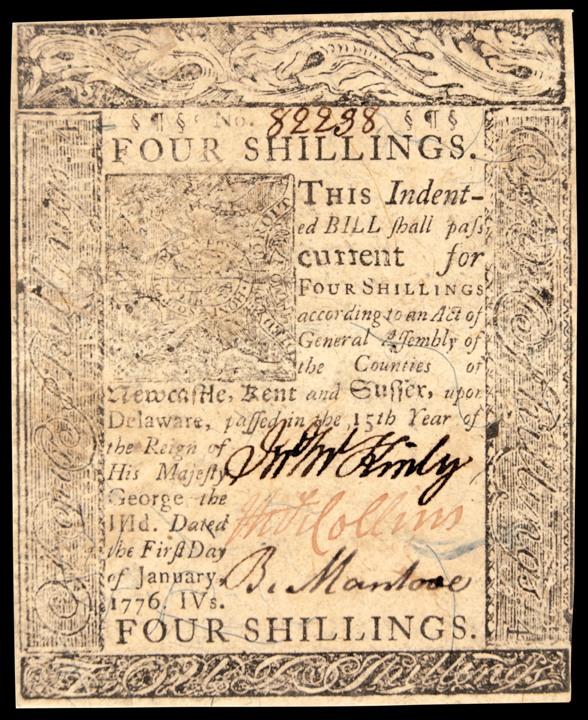 § ¶ § No. 82238 § ¶ §
FOUR SHILLINGS.
THIS Indent-
ed BILL ſhall paſs
current for
FOUR SHILLINGS
according to an Act of
General Aſſembly of
the Counties of
Newcaſtle, Kent and Suſſex, upon
Delaware, paſſed in the 15th Year of
the Reign of
His Majeſty
George the
IIId. Dated
the Firſt Day
of January,
1776 IVs.
Jno Mc Kinly
Thos Collins
B. Manlove
FOUR SHILLINGS.
Four Shillings
Four Shillings